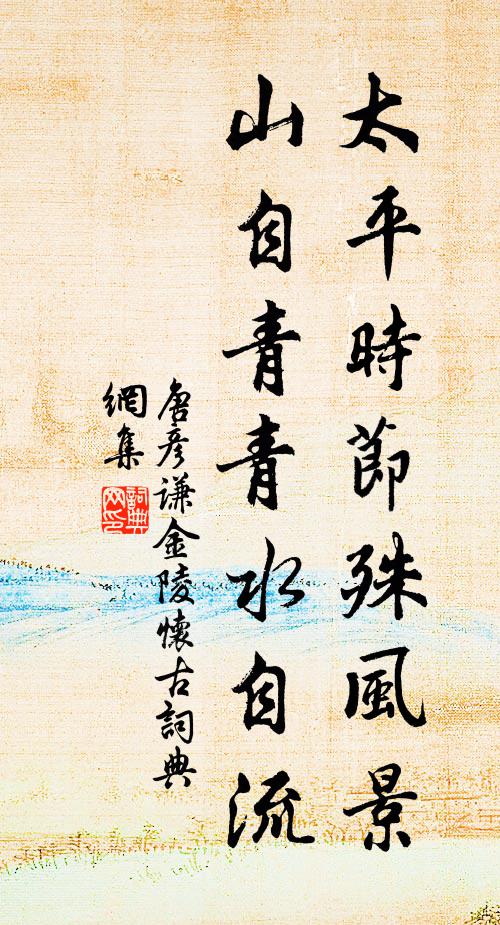 太平時節殊風景
山自青青水自流
唐彥谦金陵懷古詞典
網集
詞典
网印